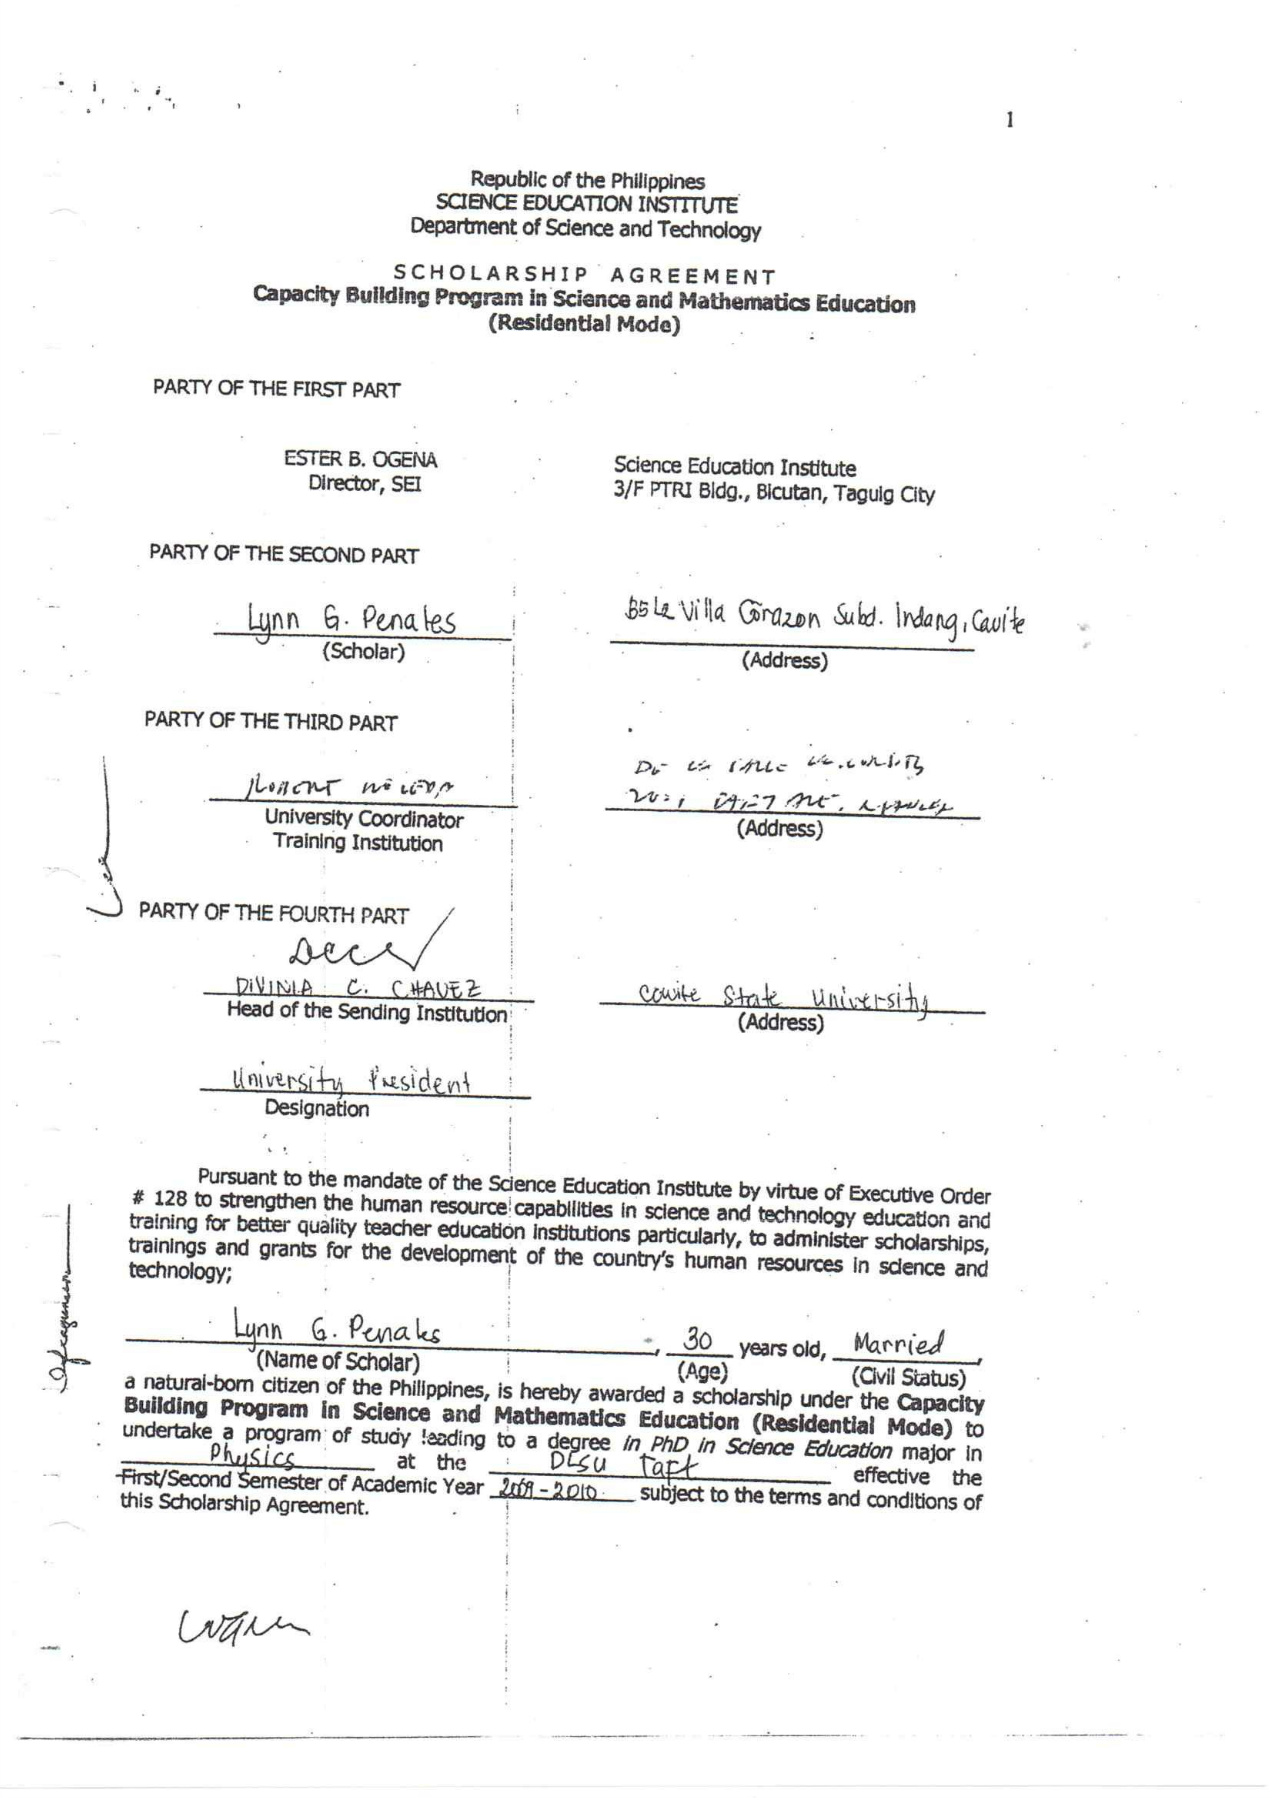 1
Republic of the Philippines
SCIENCE EDUCATION INSTITUTE
Department of Science and Technology
SCHOLARSHIP AGREEMENT
Capacity Building Program in Science and Mathematics Education
(Residential Mode)
PARTY OF THE FIRST PART
ESTER B. OGENA
Director, SEI
Science Education Institute
3/F PTRI Bldg., Bicutan, Taguig City
PARTY OF THE SECOND PART
Lynn G. Penales
(Scholar)
Villa Corazon Subd. Indang, Cavite
(Address)
PARTY OF THE THIRD PART
University Coordinator
Training Institution
(Address)
PARTY OF THE FOURTH PART
DIVINIA C. CHAVEZ
Head of the Sending Institution
Cavite State University
(Address)
University President
Designation
Pursuant to the mandate of the Science Education Institute by virtue of Executive Order
# 128 to strengthen the human resource capabilities in science and technology education and
training for better quality teacher education institutions particularly, to administer scholarships,
trainings and grants for the development of the country's human resources in science and
technology;
Lynn G. Penales, 30 years old, Married,
(Name of Scholar) (Age) (Civil Status)
a natural-born citizen of the Philippines, is hereby awarded a scholarship under the Capacity
Building Program in Science and Mathematics Education (Residential Mode) to
undertake a program of study leading to a degree in PhD in Science Education major in
Physics at the DLSU Taft effective the
First/Second Semester of Academic Year 2009-2010 subject to the terms and conditions of
this Scholarship Agreement.